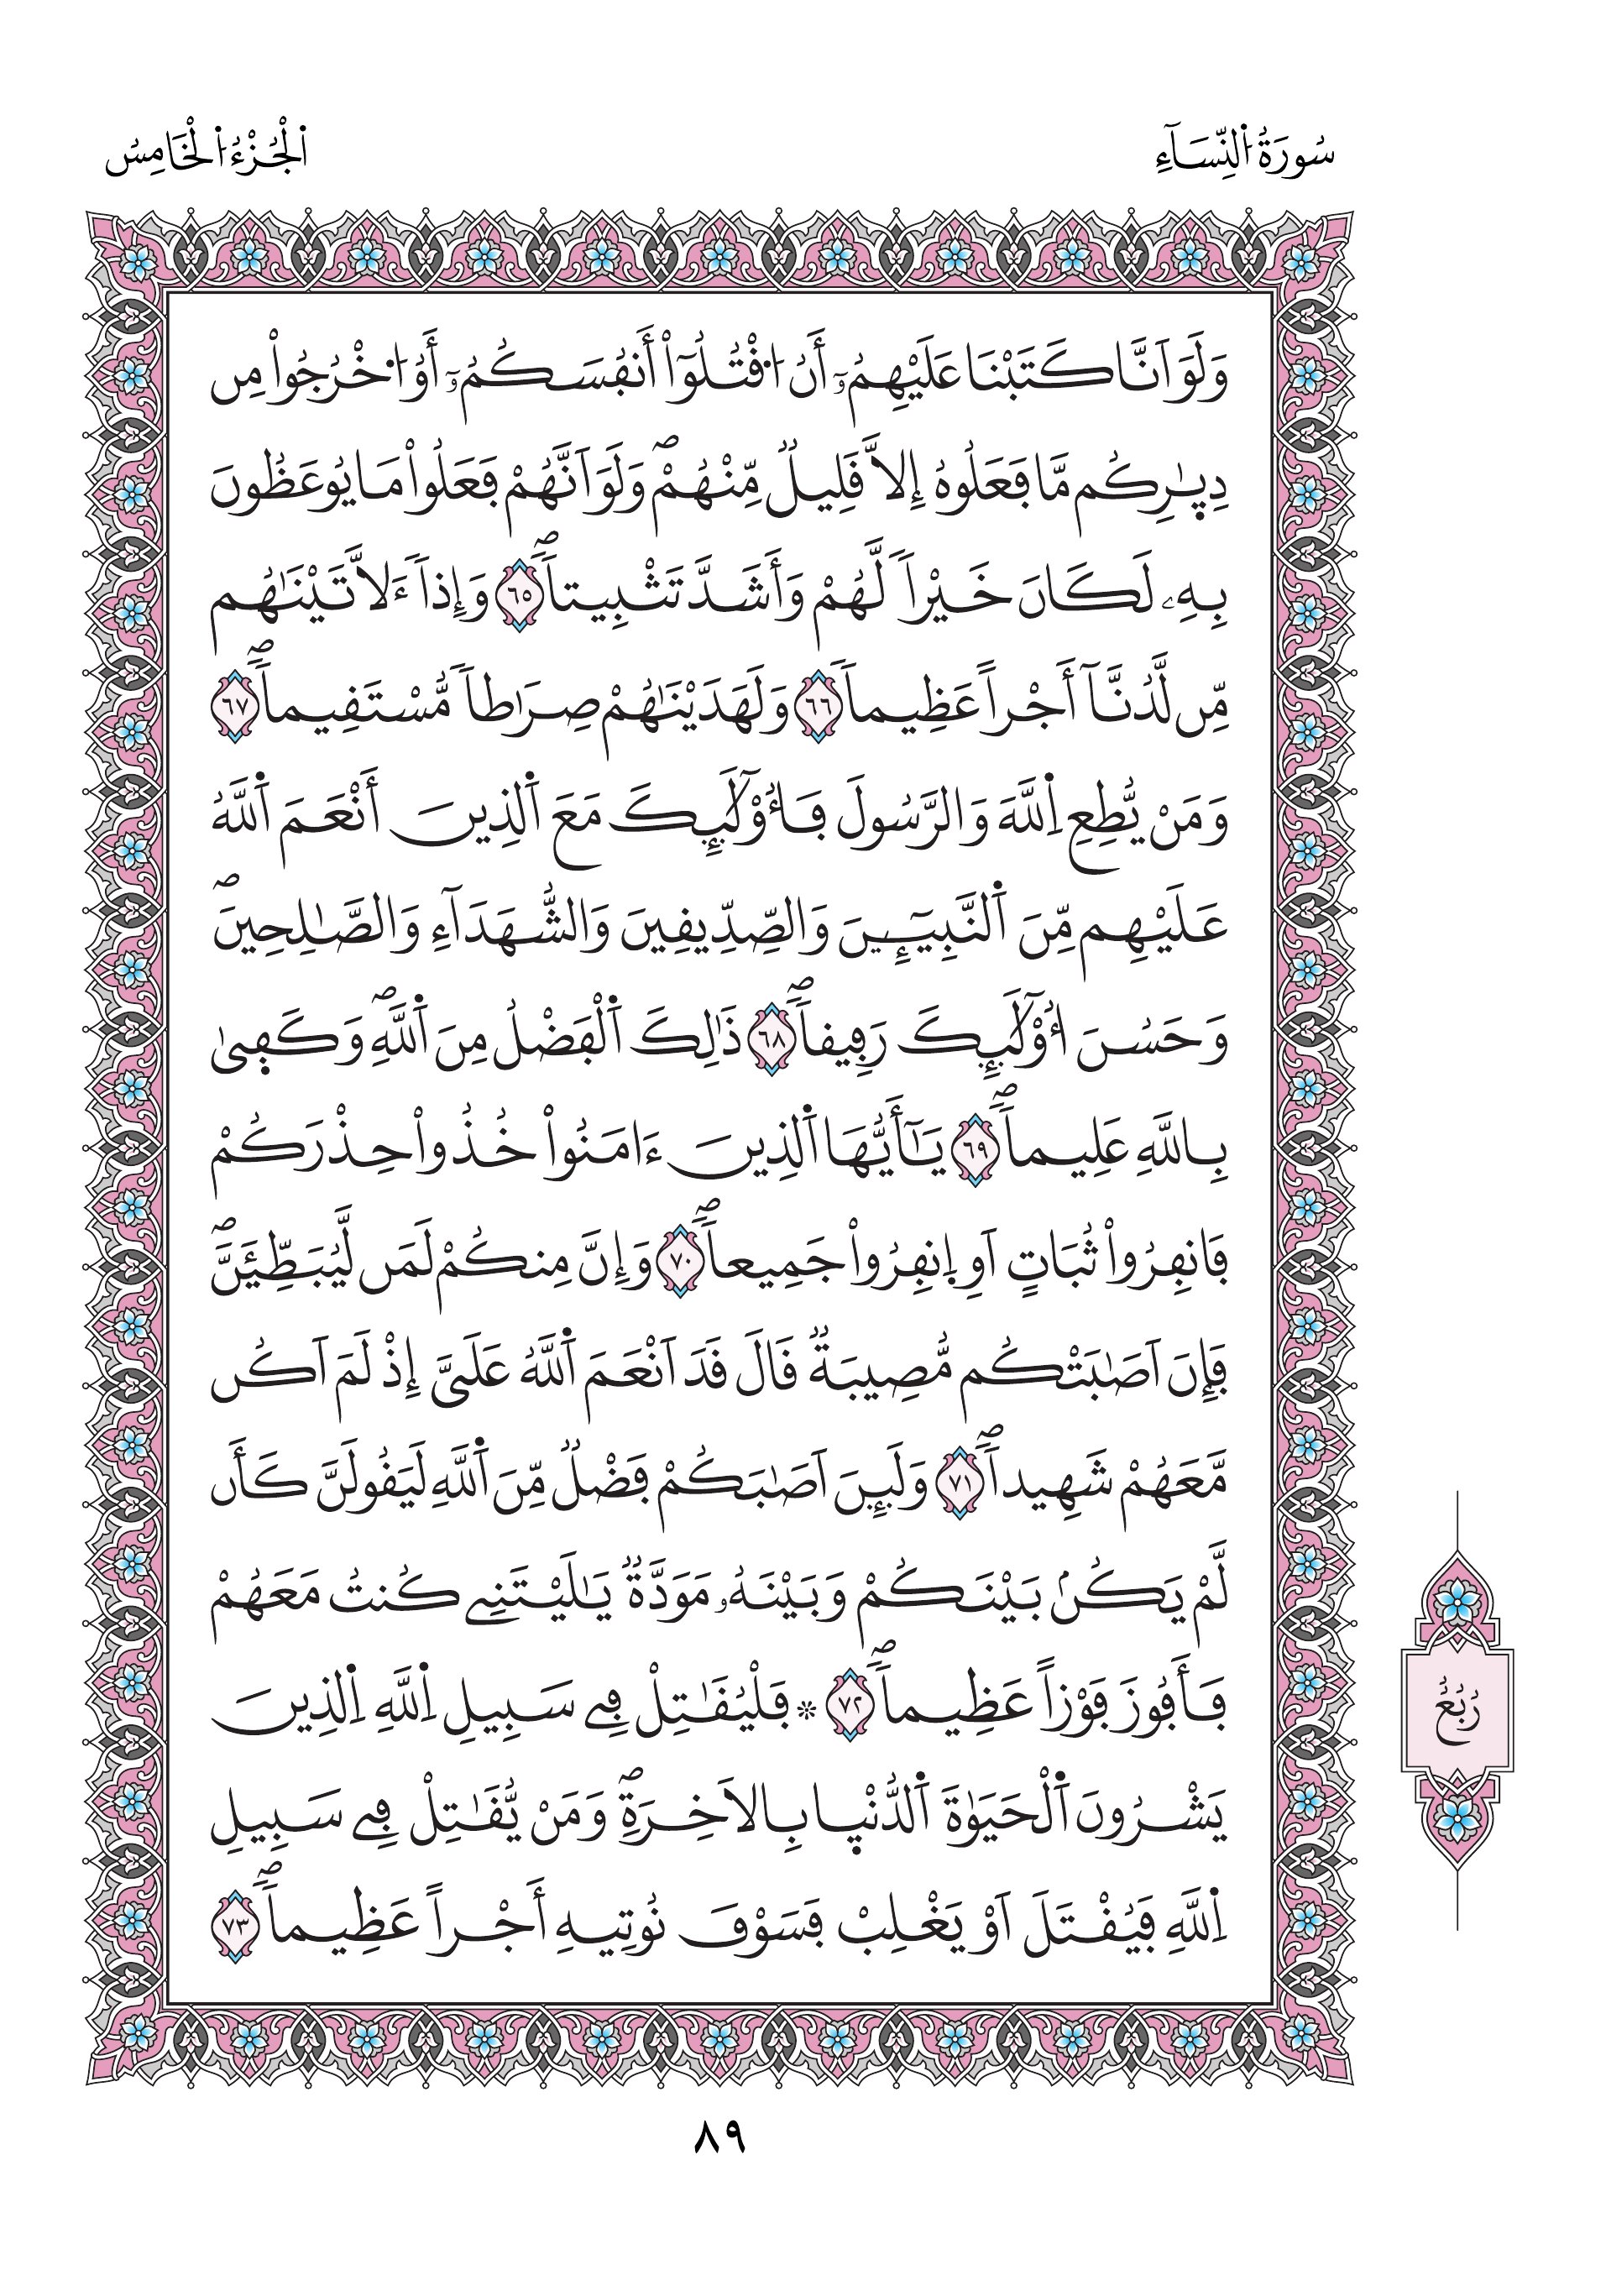 سُورَةُ اُ۬لنِّسَآءِ
اَ۬لْجُزْءُ اُ۬لْخَامِسُ
وَلَوَ اَنَّا كَتَبْنَا عَلَيْهِمُۥٓ أَنُ اُ۟قْتُلُوٓاْ أَنفُسَكُمُۥٓ أَوُ اُ۟خْرُجُواْ مِن
دِيٰ۪رِكُم مَّا فَعَلُوهُ إِلاَّ قَلِيلٞ مِّنْهُمْۖ وَلَوَ اَنَّهُمْ فَعَلُواْ مَا يُوعَظُونَ
بِهِۦ لَكَانَ خَيْراٗ لَّهُمْ وَأَشَدَّ تَثْبِيتاٗۖ ٦٥ وَإِذاٗ ءَلاَّتَيْنَٰهُم
مِّن لَّدُنَّآ أَجْراً عَظِيماٗ ٦٦ وَلَهَدَيْنَٰهُمْ صِرَٰطاٗ مُّسْتَقِيماٗۖ ٦٧
وَمَنْ يُّطِعِ اِ۬للَّهَ وَالرَّسُولَ فَأُوْلَٰٓئِكَ مَعَ اَ۬لذِينَ أَنْعَمَ اَ۬للَّهُ
عَلَيْهِم مِّنَ اَ۬لنَّبِيٓـِٕينَ وَالصِّدِّيقِينَ وَالشُّهَدَآءِ وَالصَّٰلِحِينَۖ
وَحَسُنَ أُوْلَٰٓئِكَ رَفِيقاٗۖ ٦٨ ذَٰلِكَ اَ۬لْفَضْلُ مِنَ اَ۬للَّهِۖ وَكَف۪يٰ
بِاللَّهِ عَلِيماٗۖ ٦٩ يَٰٓأَيُّهَا اَ۬لذِينَ ءَامَنُواْ خُذُواْ حِذْرَكُمْ
فَانفِرُواْ ثُبَاتٍ اَوِ اِ۪نفِرُواْ جَمِيعاٗۖ ٧٠ وَإِنَّ مِنكُمْ لَمَن لَّيُبَطِّئَنَّۖ
فَإِنَ اَصَٰبَتْكُم مُّصِيبَةٞ قَالَ قَدَ اَنْعَمَ اَ۬للَّهُ عَلَيَّ إِذْ لَمَ اَكُن
مَّعَهُمْ شَهِيداٗۖ ٧١ وَلَئِنَ اَصَٰبَكُمْ فَضْلٞ مِّنَ اَ۬للَّهِ لَيَقُولَنَّ كَأَن
لَّمْ يَكُنۢ بَيْنَكُمْ وَبَيْنَهُۥ مَوَدَّةٞ يَٰلَيْتَنِے كُنتُ مَعَهُمْ
فَأَفُوزَ فَوْزاً عَظِيماٗۖ ٧٢ ۞ فَلْيُقَٰتِلْ فِے سَبِيلِ اِ۬للَّهِ اِ۬لذِينَ
يَشْرُونَ اَ۬لْحَيَوٰةَ اَ۬لدُّنْي۪ا بِالاَخِرَةِۖ وَمَنْ يُّقَٰتِلْ فِے سَبِيلِ
اِ۬للَّهِ فَيُقْتَلَ اَوْ يَغْلِبْ فَسَوْفَ نُوتِيهِ أَجْراً عَظِيماٗۖ ٧٣
رُبُعُ
٨٩